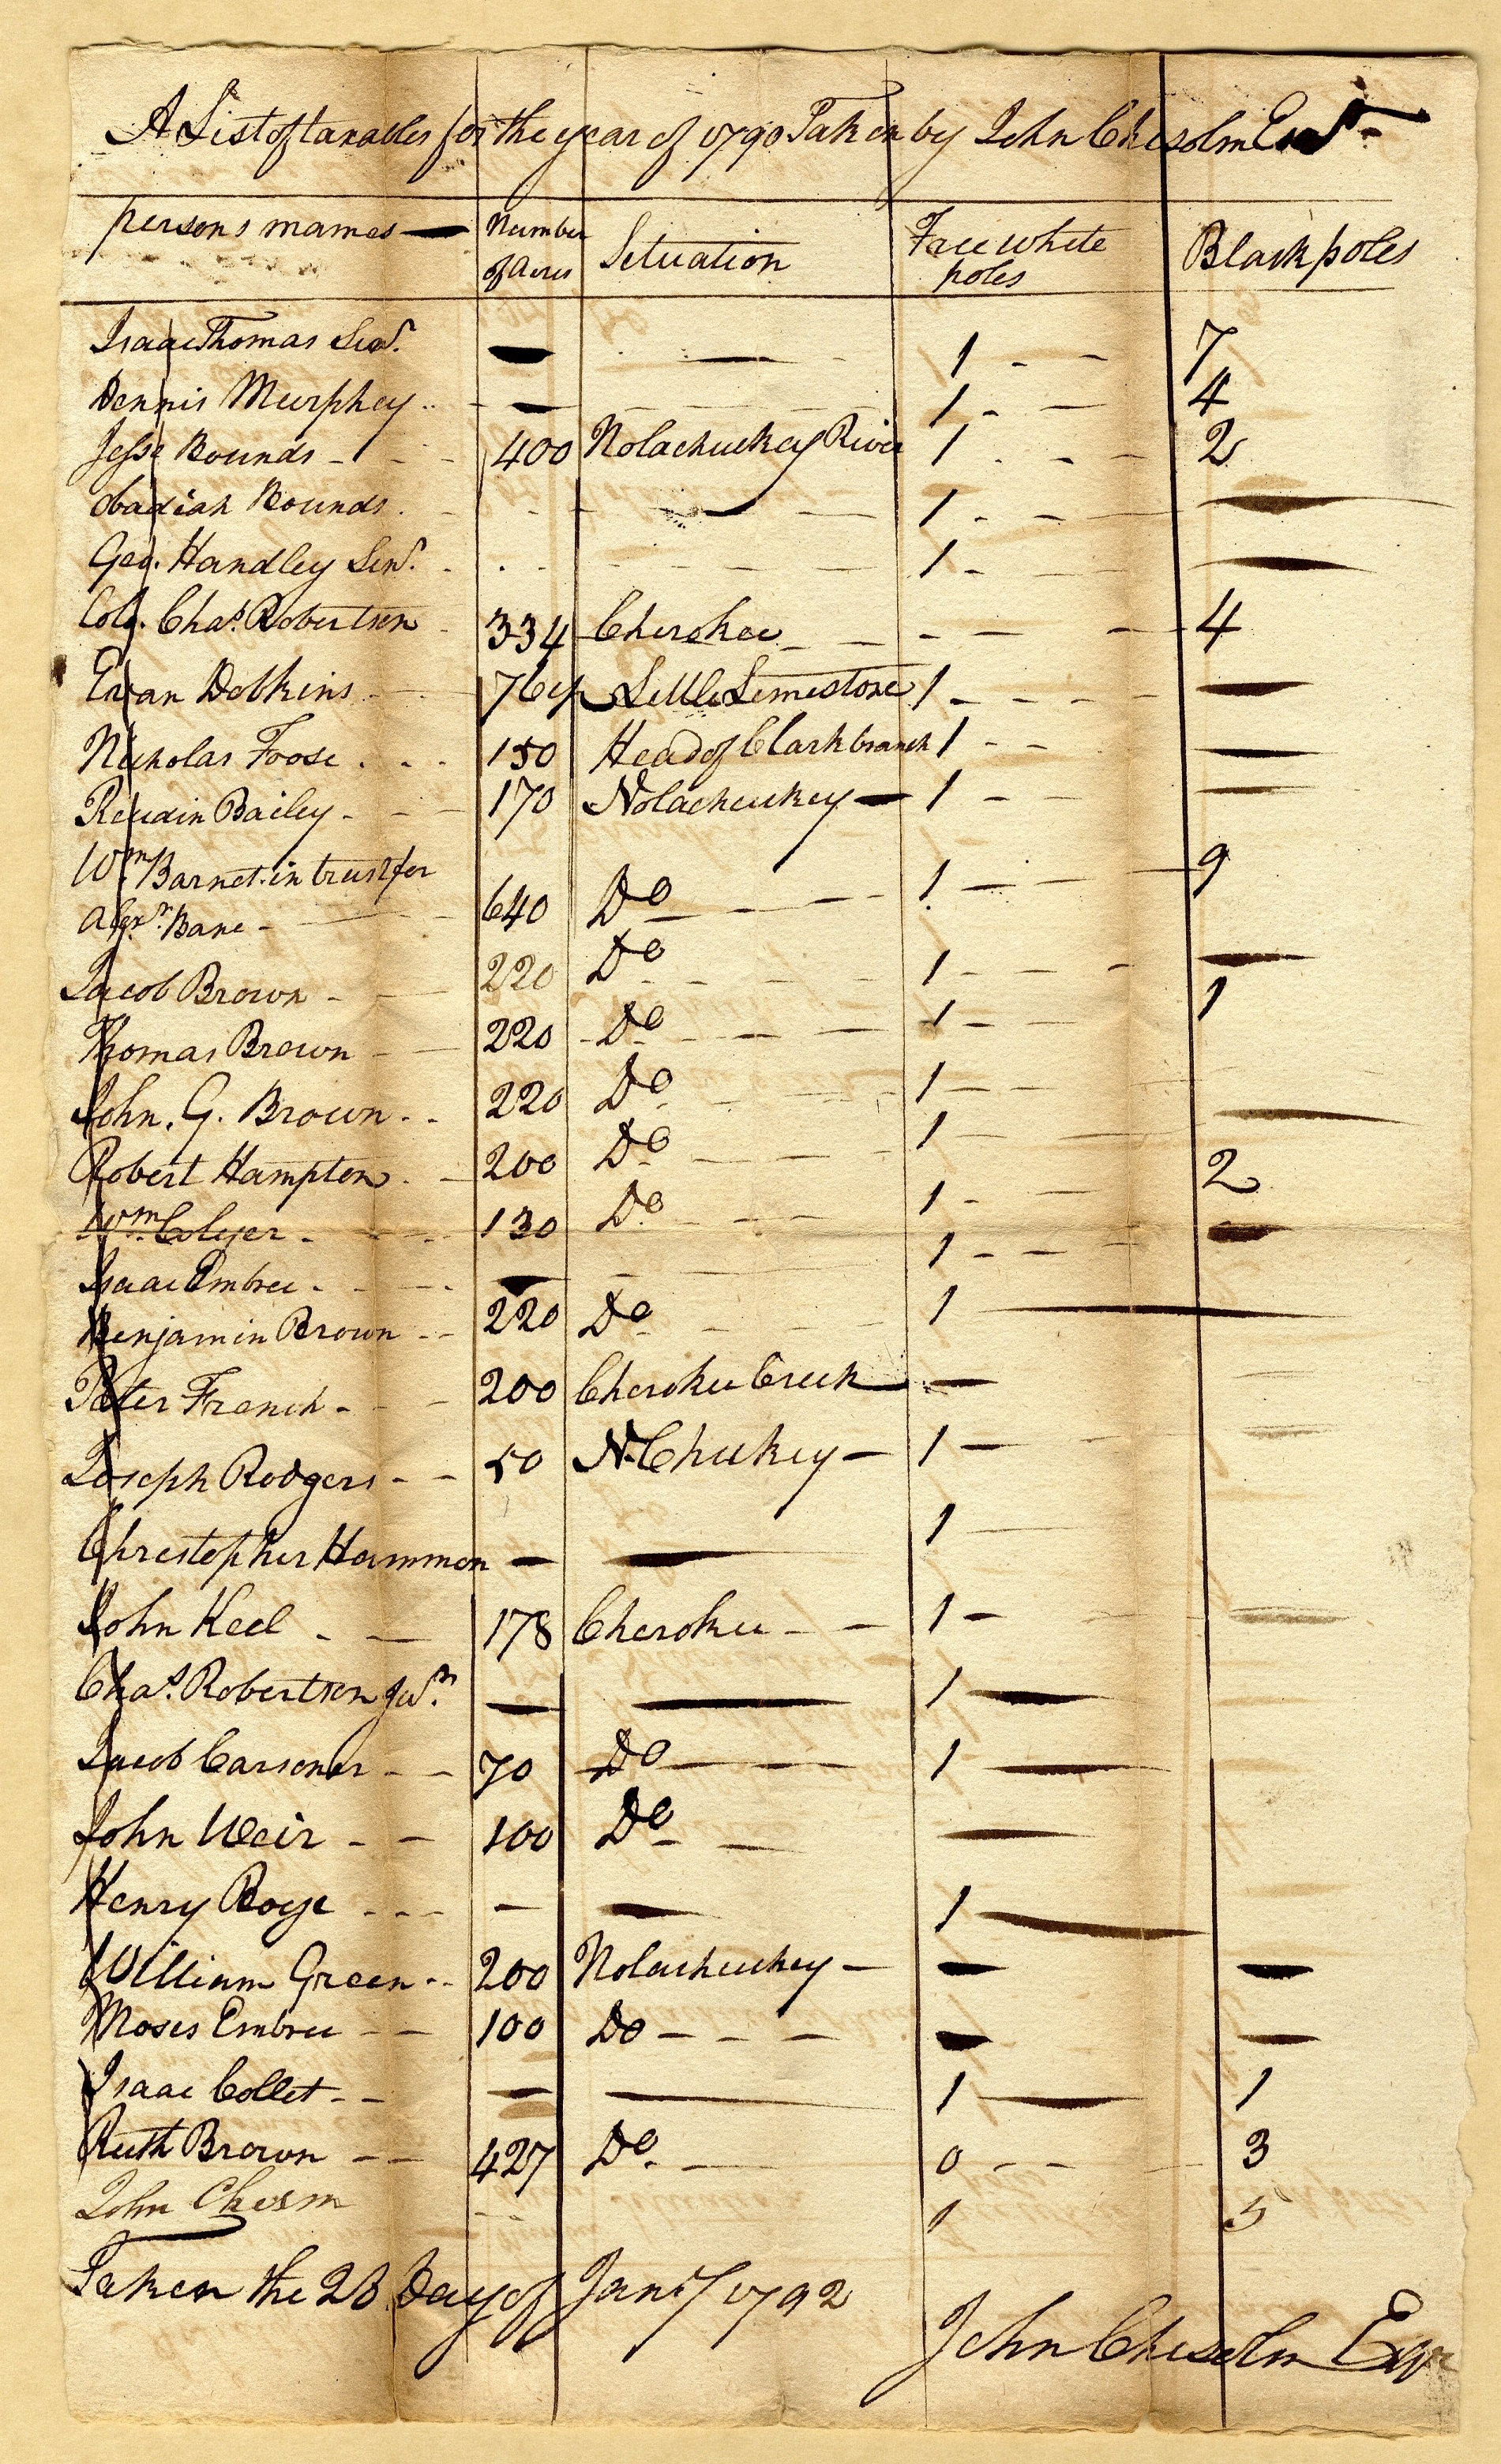 A List of taxables for the year of 1790 Taken by John Chesolm Esqr
persons names Number of Acres Situation Free white poles Black poles
Isaac Thomas Senr. — — 1 7
Dennis Murphey — — 1 4
Jesse Bounds 400 Nolachuckey River 1 2
Obadiah Bounds — 1 —
Geo. Handley Senr. — 1 —
Colo. Chas. Robertson 334 Cherokee — 4
Evan Dobkins Little Limestone 1 —
Nicholas Foose 150 Head of Clark branch 1 —
Bailey 170 Nolachuckey — 1 —
Wm. Barnet in trust for
Alexr. Bane 640 Do 1 9
Jacob Brown 220 Do 1 —
Thomas Brown 220 Do 1 1
John. G. Brown 220 Do 1
Robert Hampton 200 Do 1 —
Wm. Colyer 130 Do 1 2
Isaac Embree — 1 —
Benjamin Brown 220 Do 1 —
Peter French 200 Cherokee Creek —
Joseph Rodgers 50 N. Chuckey — 1 —
Chrestopher Hammon — — 1 —
John Keel 178 Cherokee 1 —
Chas. Robertson Junr. — — 1 —
Jacob Carsoner 70 Do 1 —
John Weir 100 Do —
Henry Boye — — 1 —
William Green 200 Nolachuckey — — —
Moses Embree 100 Do — —
Isaac Collet — — 1 — 1
Ruth Brown 427 Do. 0 3
John Chesm 1 5
Taken the 28 Day of Jany 1792
John Chesolm Esqr